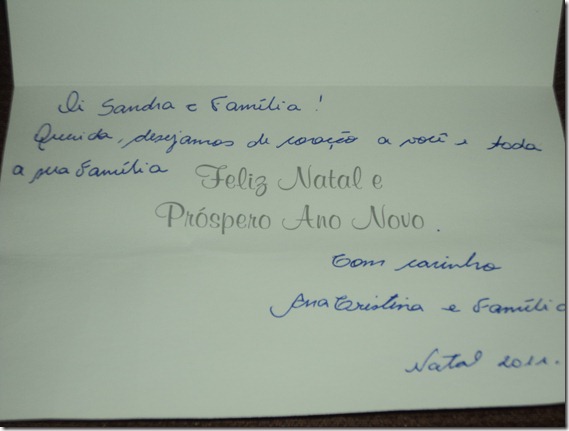 Oi Sandra e Família!
Querida, desejamos de coração a você e toda
a sua família
Feliz Natal e
Próspero Ano Novo.
Com carinho
Ana Cristina e Família
Natal 2011.